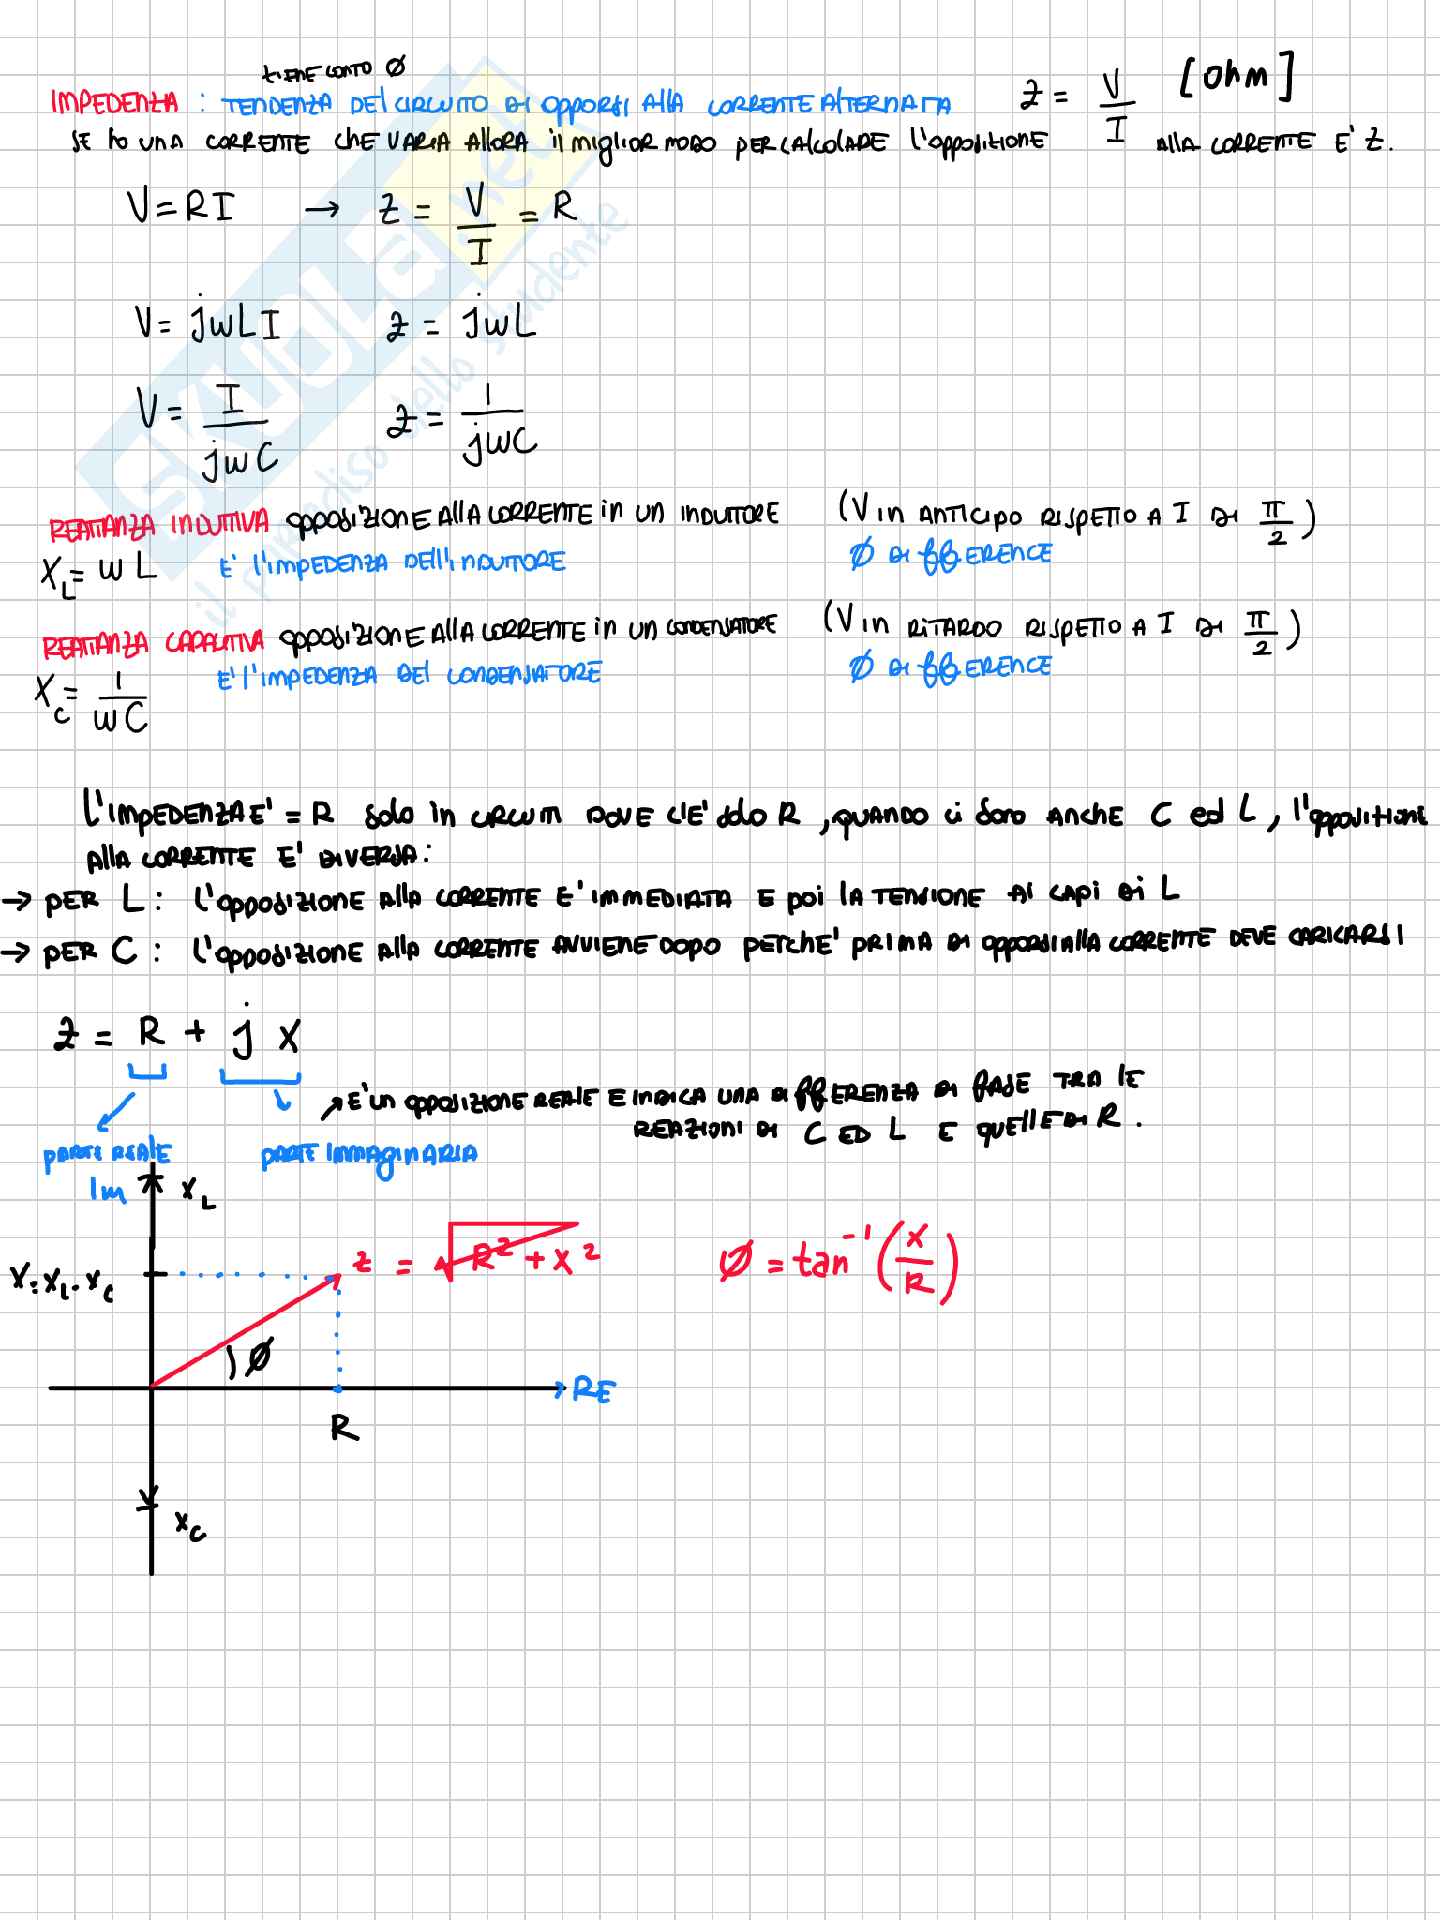 tiene conto Ø
IMPEDENZA : TENDENZA DEL CIRCUITO DI OPPORSI ALLA CORRENTE ALTERNATA Z = V/I [ohm]
SE HO UNA CORRENTE CHE VARIA ALLORA IL MIGLIOR MODO PER CALCOLARE L'OPPOSIZIONE ALLA CORRENTE E' Z.
V = RI → Z = V/I = R
V = jωLI Z = jωL
V = I/jωC Z = 1/jωC
REATTANZA INDUTTIVA OPPOSIZIONE ALLA CORRENTE IN UN INDUTTORE (V IN ANTICIPO RISPETTO A I DI π/2)
X_L = ωL E' L'IMPEDENZA DELL'INDUTTORE Ø DIFFERENCE
REATTANZA CAPACITIVA OPPOSIZIONE ALLA CORRENTE IN UN CONDENSATORE (V IN RITARDO RISPETTO A I DI π/2)
X_C = 1/ωC E' L'IMPEDENZA DEL CONDENSATORE Ø DIFFERENCE
L'IMPEDENZA E' = R SOLO IN CIRCUITI DOVE C'E' SOLO R, QUANDO CI SONO ANCHE C ED L, L'OPPOSIZIONE
ALLA CORRENTE E' DIVERSA:
→ PER L: L'OPPOSIZIONE ALLA CORRENTE E' IMMEDIATA E POI LA TENSIONE AI CAPI DI L
→ PER C: L'OPPOSIZIONE ALLA CORRENTE AVVIENE DOPO PERCHE' PRIMA DI OPPORSI ALLA CORRENTE DEVE CARICARSI
Z = R + jX
↗ E' UN OPPOSIZIONE REALE E INDICA UNA DIFFERENZA DI FASE TRA LE
REAZIONI DI C ED L E QUELLE DI R.
PARTE REALE PARTE IMMAGINARIA
Im X_L
X = X_L - X_C Z = √R² + X² Ø = tan⁻¹(X/R)
Ø
RE
R
X_C
SKUOLA.net
il paradiso dello studente